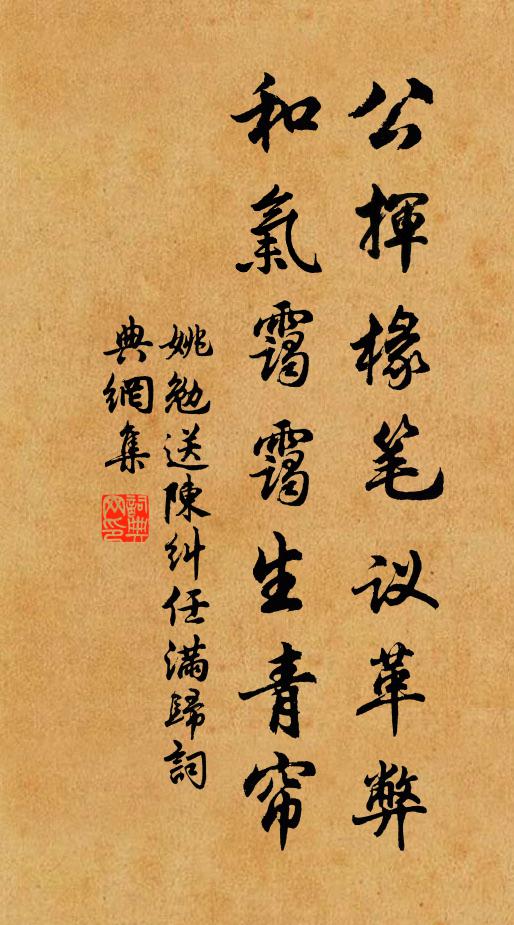 公揮椽笔议革弊
和氣靄靄生青帘
姚勉送陳糾任滿歸詞
典網集
詞典網印